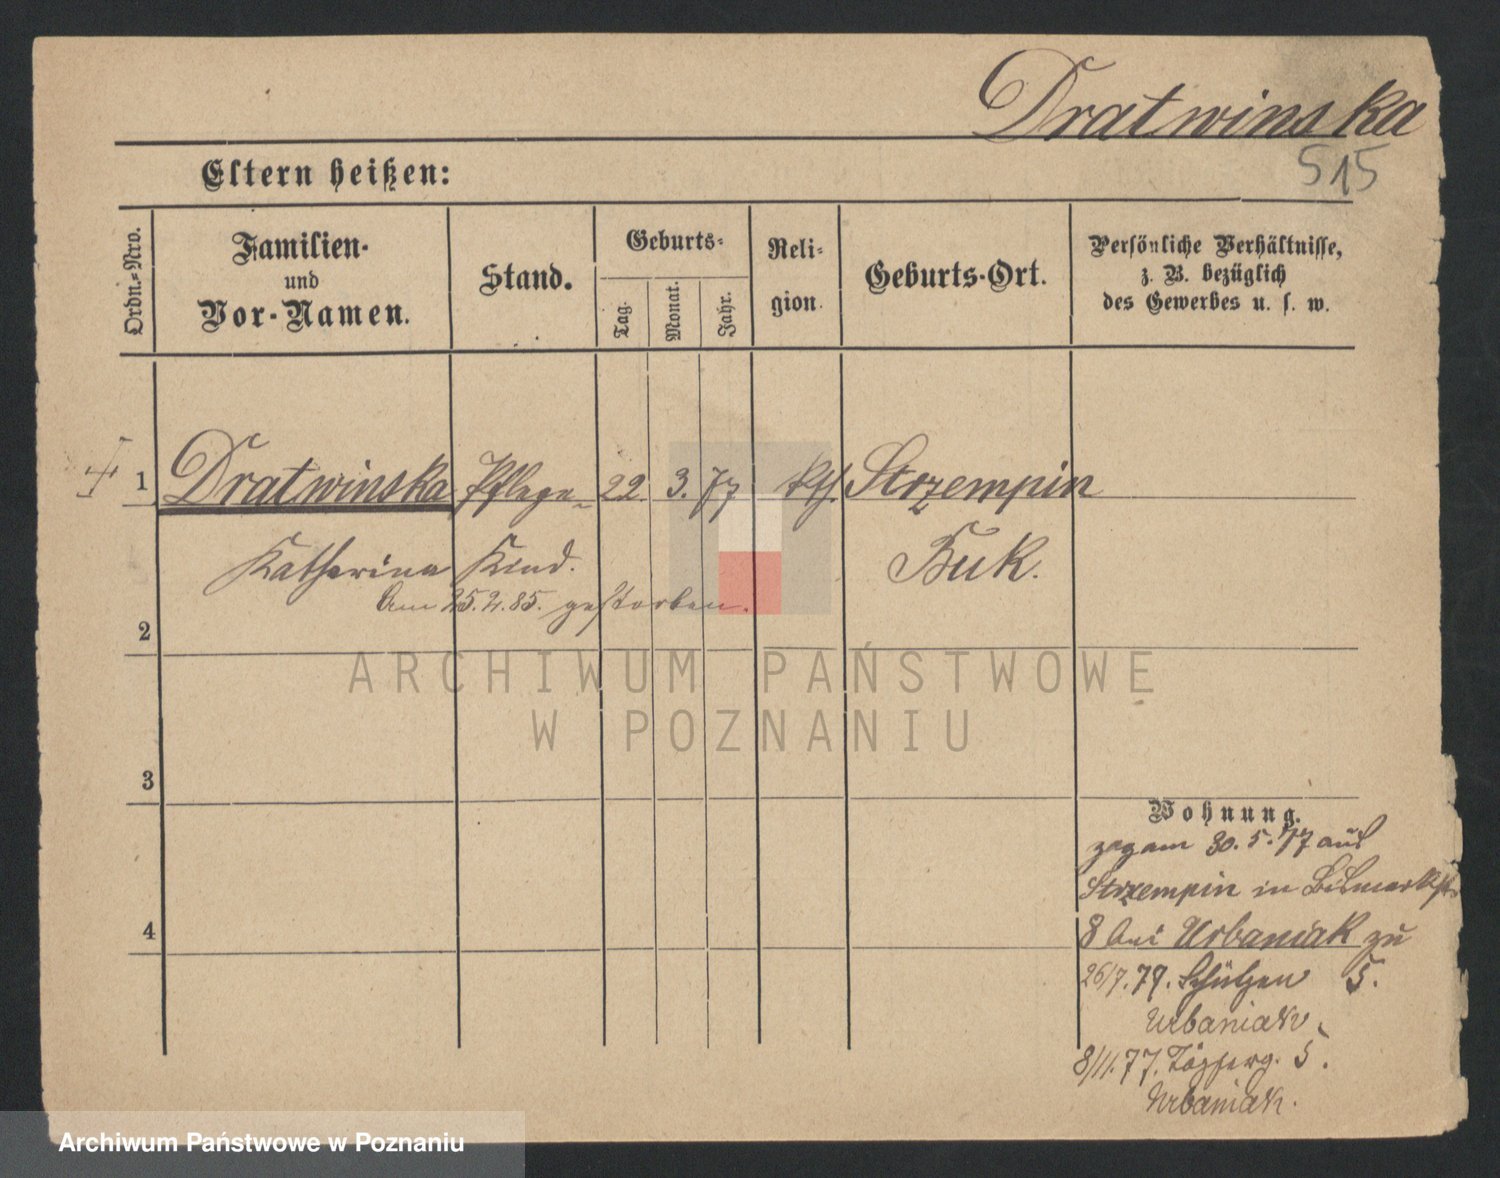 Dratwinska
515
Eltern heißen:
Ordn.-Nro.
Familien-
und
Vor-Namen.
Stand.
Geburts-
Tag.
Monat.
Jahr.
Reli-
gion.
Geburts-Ort.
Persönliche Verhältnisse,
z. B. bezüglich
des Gewerbes u. s. w.
1 Dratwinska Pflege- 22. 3. 77 kth. Strzempin
Katharina Kind. Buk.
Am 25.2.85. gestorben.
2
ARCHIWUM PAŃSTWOWE
W POZNANIU
3
Wohnung.
zog am 30. 5. 77 aus
Strzempin in Bismarckstr
4
8 bei Urbaniak zu
26/7. 77. Schützen 5.
Urbaniak.
8/11. 77. 5.
Urbaniak.
Archiwum Państwowe w Poznaniu